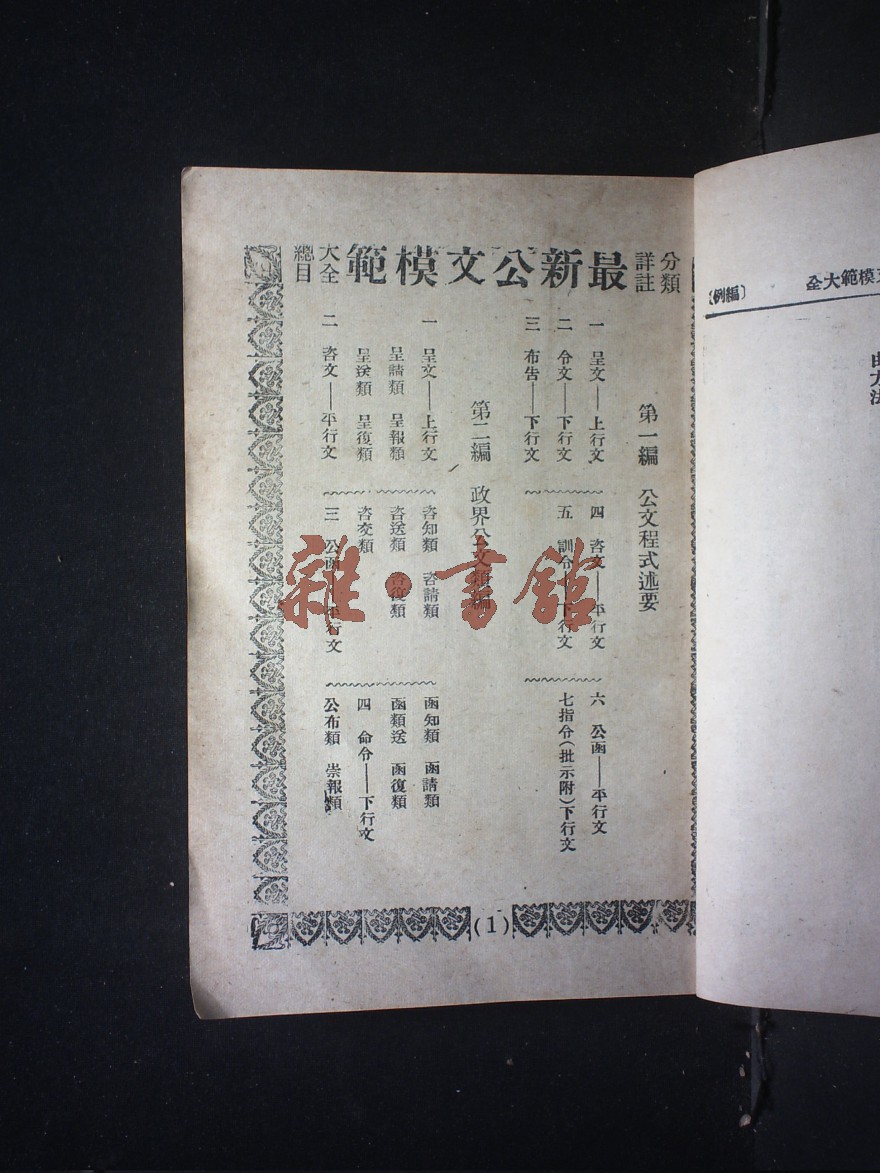 模範大全
〔編例〕
分類
詳註
最新公文模範
大全
總目
第一編　公文程式述要
一　呈文——上行文
二　令文——下行文
三　布告——下行文
四　咨文——平行文
五　訓令——下行文
六　公函——平行文
七指令(批示附)下行文
第二編　政界公文類編
一　呈文——上行文
呈請類　呈報類
呈送類　呈復類
二　咨文——平行文
咨知類　咨請類
咨送類　咨復類
咨交類
三　公函——平行文
函知類　函請類
函類送　函復類
四　命令——下行文
公布類　崇報類
(1)
雜·書館